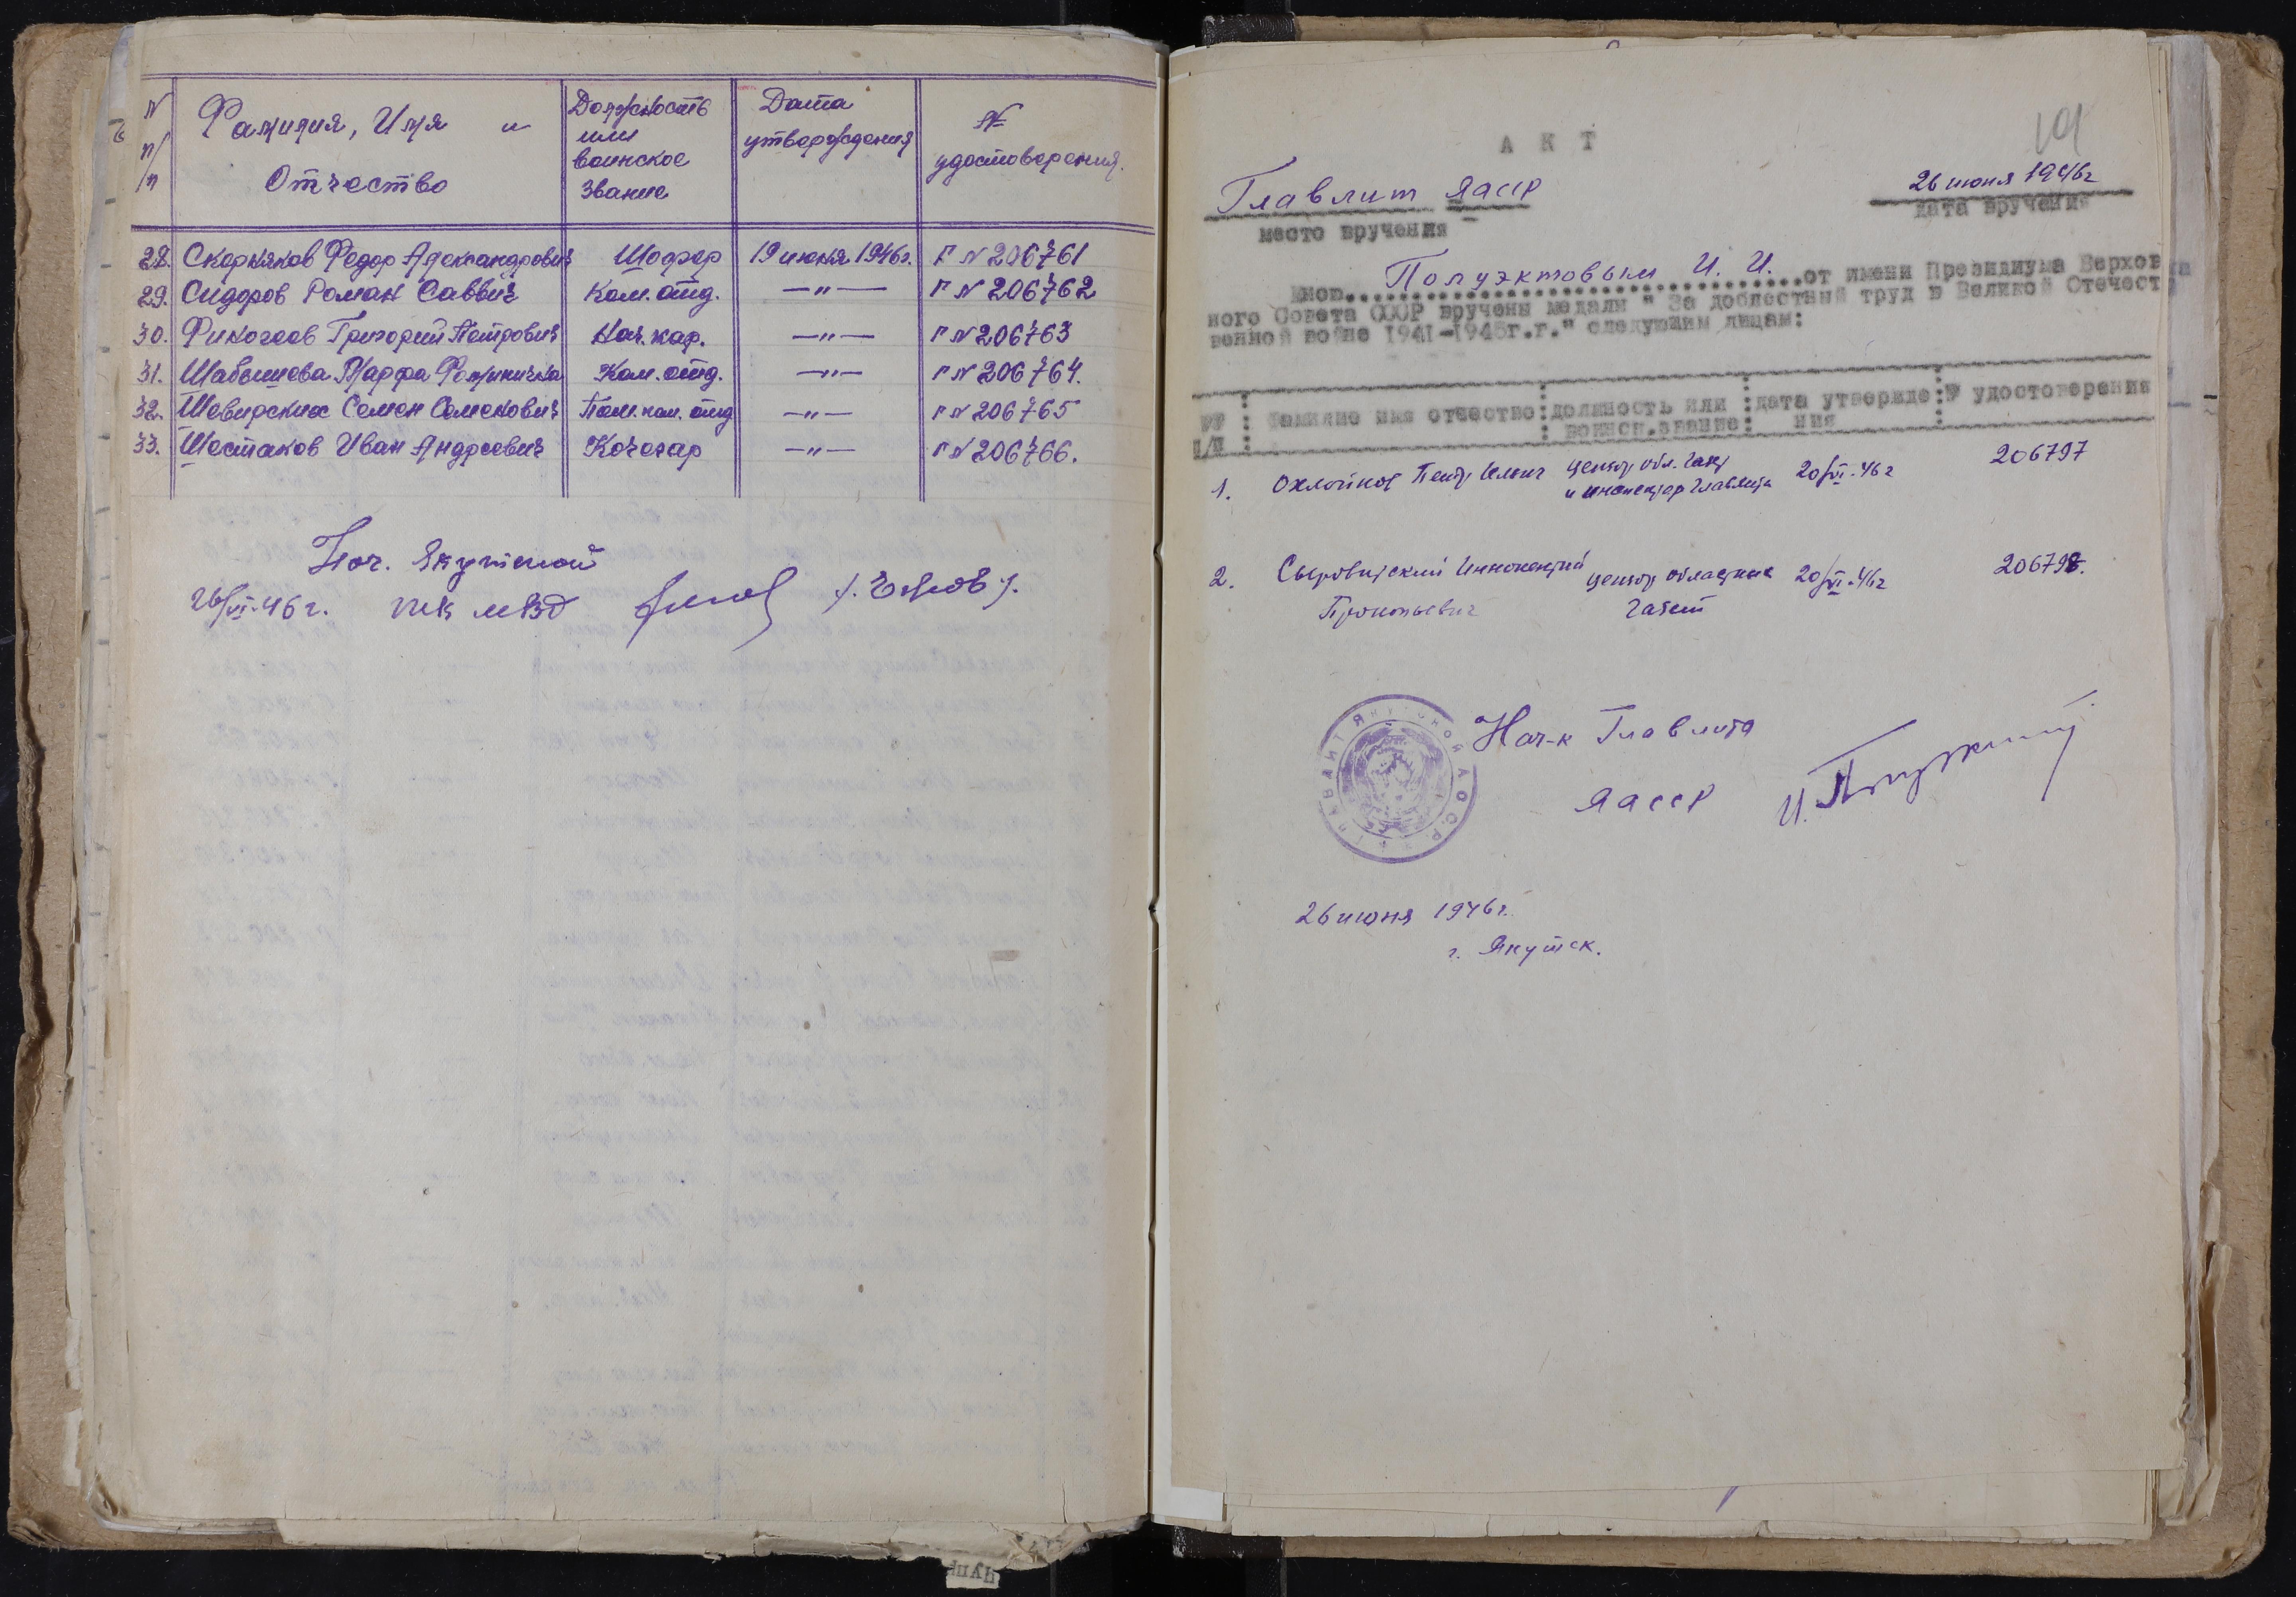 N п/п Фамилия, Имя и Отчество Должность или воинское звание Дата утверждения № удостоверения.
28. Скорняков Федор Александрович Шофер 19 июня 1946г. Г N 206761
29. Сидоров Роман Саввич Ком. отд. —"— Г N 206762
30. Финогеев Григорий Петрович Нач. кар. —"— Г N 206763
31. Шабышева Марфа Фоминична Ком. отд. —"— Г N 206764.
32. Шевирских Семен Семенович Пом. ком. отд —"— Г N 206765
33. Шестаков Иван Андреевич Кочегар —"— Г N 206766.
Нач. Якутской
26/VI-46г.
АКТ
Главлит ЯАССР 26 июня 1946г
место вручения дата вручения
Мною Полуэктовым И. И. от имени Президиума Верхов
ного Совета СССР вручены медали "За доблестный труд в Великой Отечест
венной войне 1941-1945г.г." следующим лицам:
№№ п/п фамилие имя отчество должность или воинск.звание дата утвержде ния № удостоверения
1. Охлопков Петр Ильич цензор обл. газет и инспектор Главлита 20/VI-46г 206797
2. Сыровицкий Иннокентий Прокопьевич цензор областных газет 20/VI-46г 206798.
Нач-к Главлита
ЯАССР
26 июня 1946г.
г. Якутск.